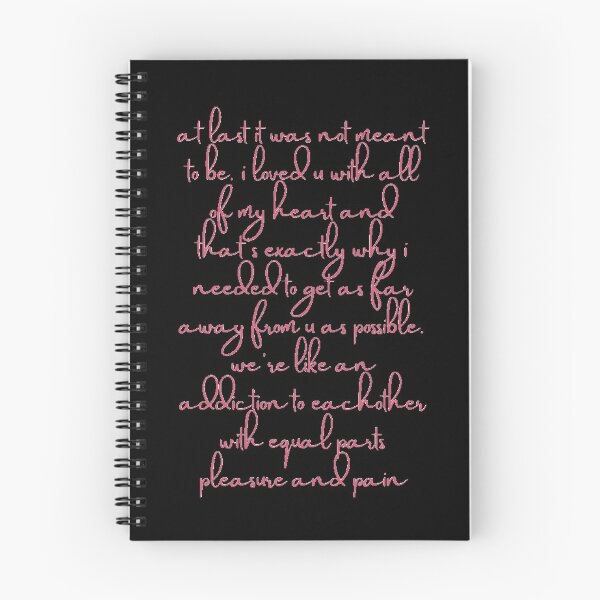 at last it was not meant
to be. i loved u with all
of my heart and
that's exactly why i
needed to get as far
away from u as possible.
we're like an
addiction to eachother
with equal parts
pleasure and pain